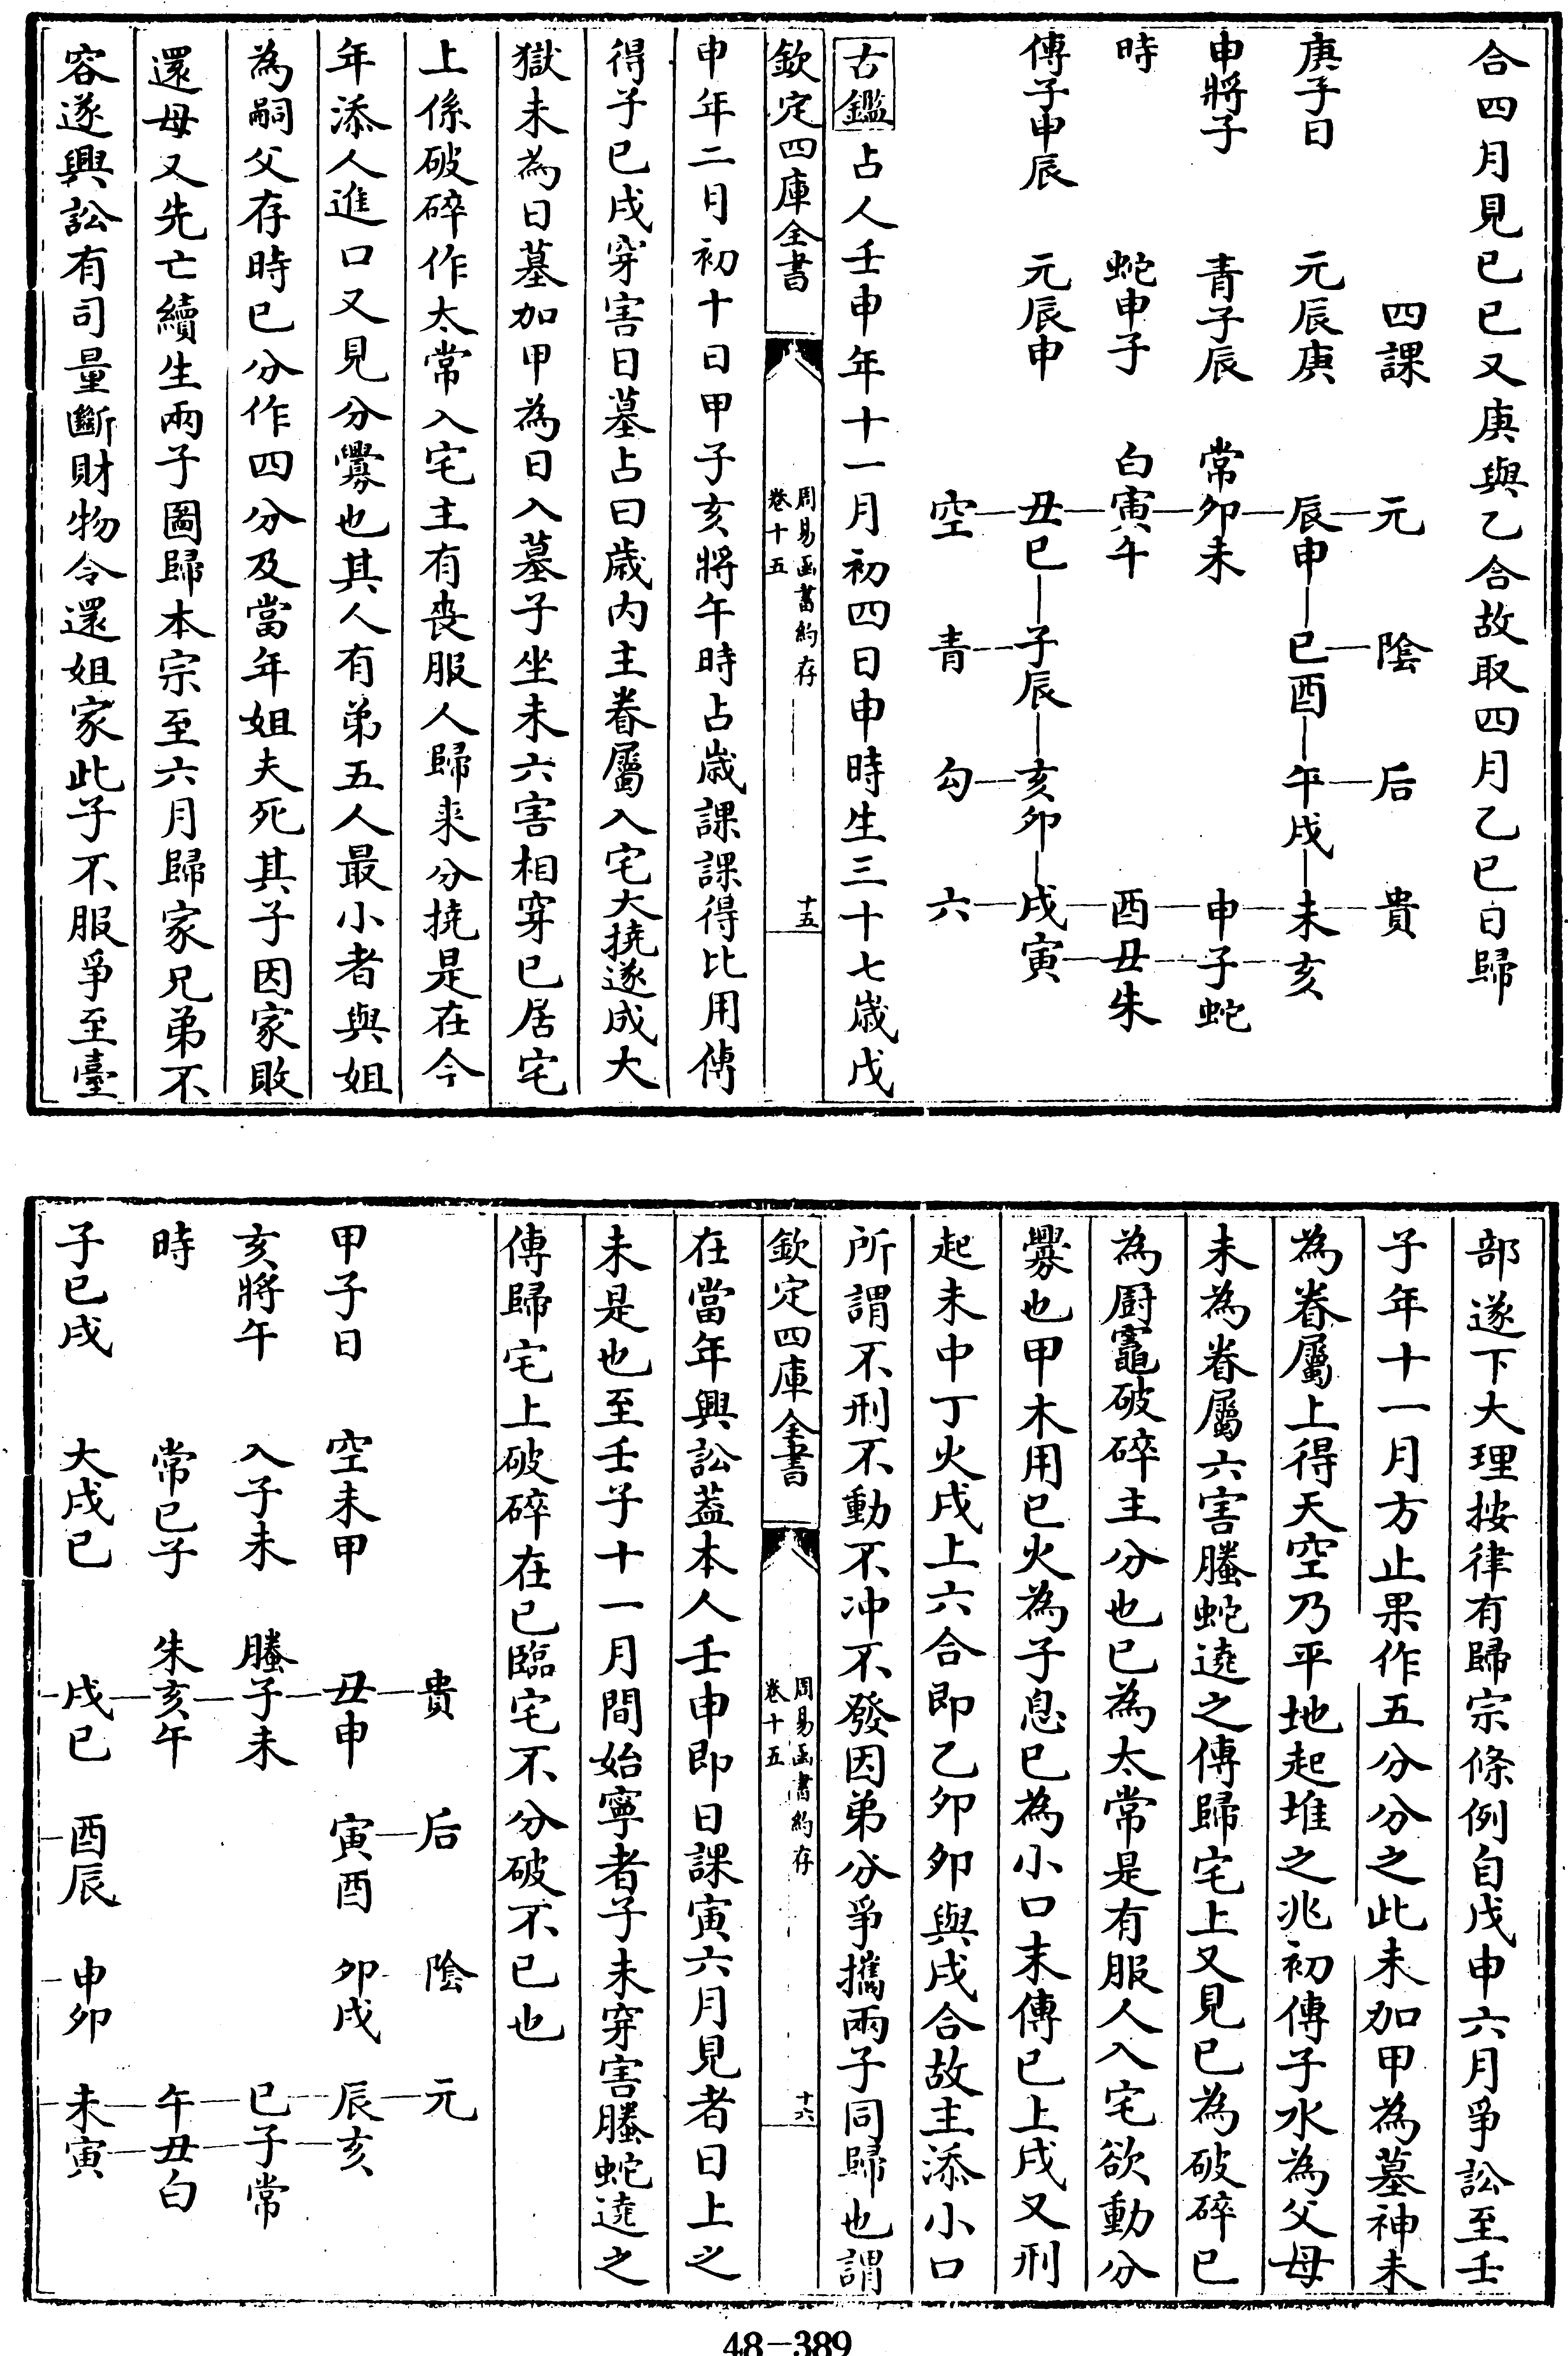 合四月見巳巳又庚與乙合故取四月乙巳日歸
四課　元　陰　后　貴
庚子日　元辰庚　辰申　巳酉　午戌　未亥
申將子　青子辰　常卯未　申子蛇
時　蛇申子　白寅午　酉丑朱
傳子申辰　元辰申　丑巳　子辰　亥卯　戌寅
空　青　勾　六
古鑑占人壬申年十一月初四日申時生三十七歲戊
欽定四庫全書　周易函書約存卷十五　十五
申年二月初十日甲子亥將午時占歲課課得比用傳
得子巳戌穿害日墓占曰歲内主眷屬入宅大撓遂成大
獄未為日墓加甲為日入墓子坐未六害相穿巳居宅
上係破碎作太常入宅主有喪服人歸来分撓是在今
年添人進口又見分爨也其人有弟五人最小者與姐
為嗣父存時已分作四分及當年姐夫死其子因家敗
還母又先亡續生兩子圖歸本宗至六月歸家兄弟不
容遂興訟有司量斷財物令還姐家此子不服爭至臺
部遂下大理按律有歸宗條例自戊申六月爭訟至壬
子年十一月方止果作五分分之此未加甲為墓神未
為眷屬上得天空乃平地起堆之兆初傳子水為父母
未為眷屬六害螣蛇遶之傳歸宅上又見巳為破碎巳
為厨竈破碎主分也巳為太常是有服人入宅欲動分
爨也甲木用巳火為子息巳為小口末傳巳上戌又刑
起未中丁火戌上六合即乙卯卯與戌合故主添小口
所謂不刑不動不冲不發因弟分爭攜兩子同歸也謂
欽定四庫全書　周易函書約存卷十五　十六
在當年興訟葢本人壬申即日課寅六月見者日上之
未是也至壬子十一月間始寧者子未穿害螣蛇遶之
傳歸宅上破碎在巳臨宅不分破不已也
貴　后　陰　元
甲子日　空未甲　丑申　寅酉　卯戌　辰亥
亥將午　入子未　螣子未　巳子常
時　常巳子　朱亥午　午丑白
子巳戌　大戌巳　戌巳　酉辰　申卯　未寅
48-389